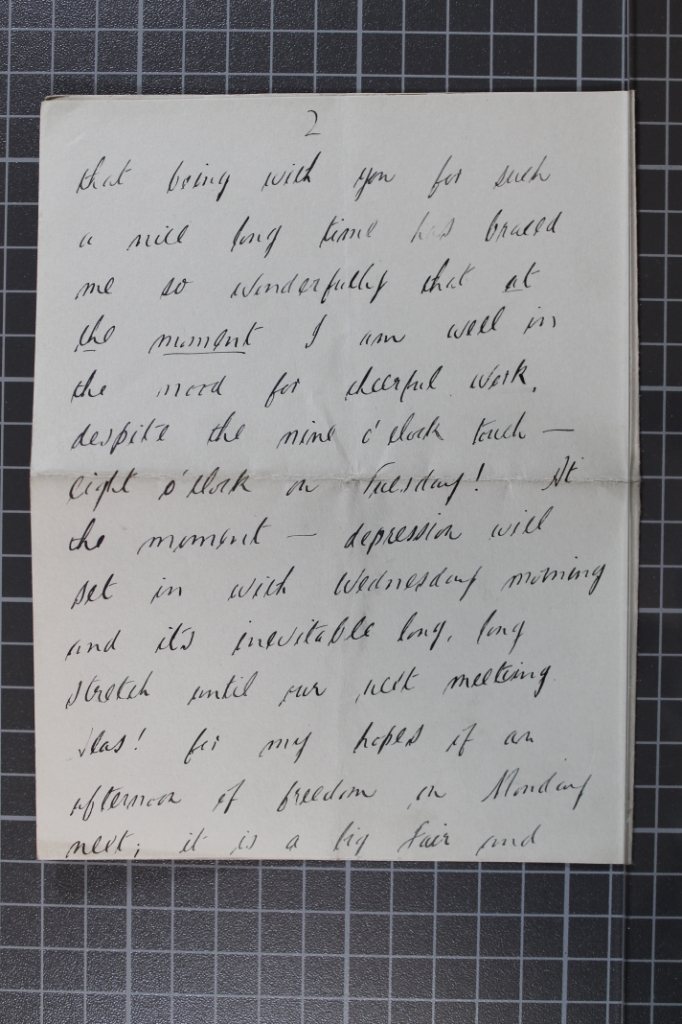 2
that being with you for such
a nice long time has braced
me so wonderfully that at
the moment I am well in
the mood for cheerful work,
despite the nine o'clock touch —
eight o'clock on Tuesday! At
the moment — depression will
set in with Wednesday morning
and it's inevitable long, long
stretch until our next meeting
Alas! for my hopes of an
afternoon of freedom on Monday
next; it is a big Fair and